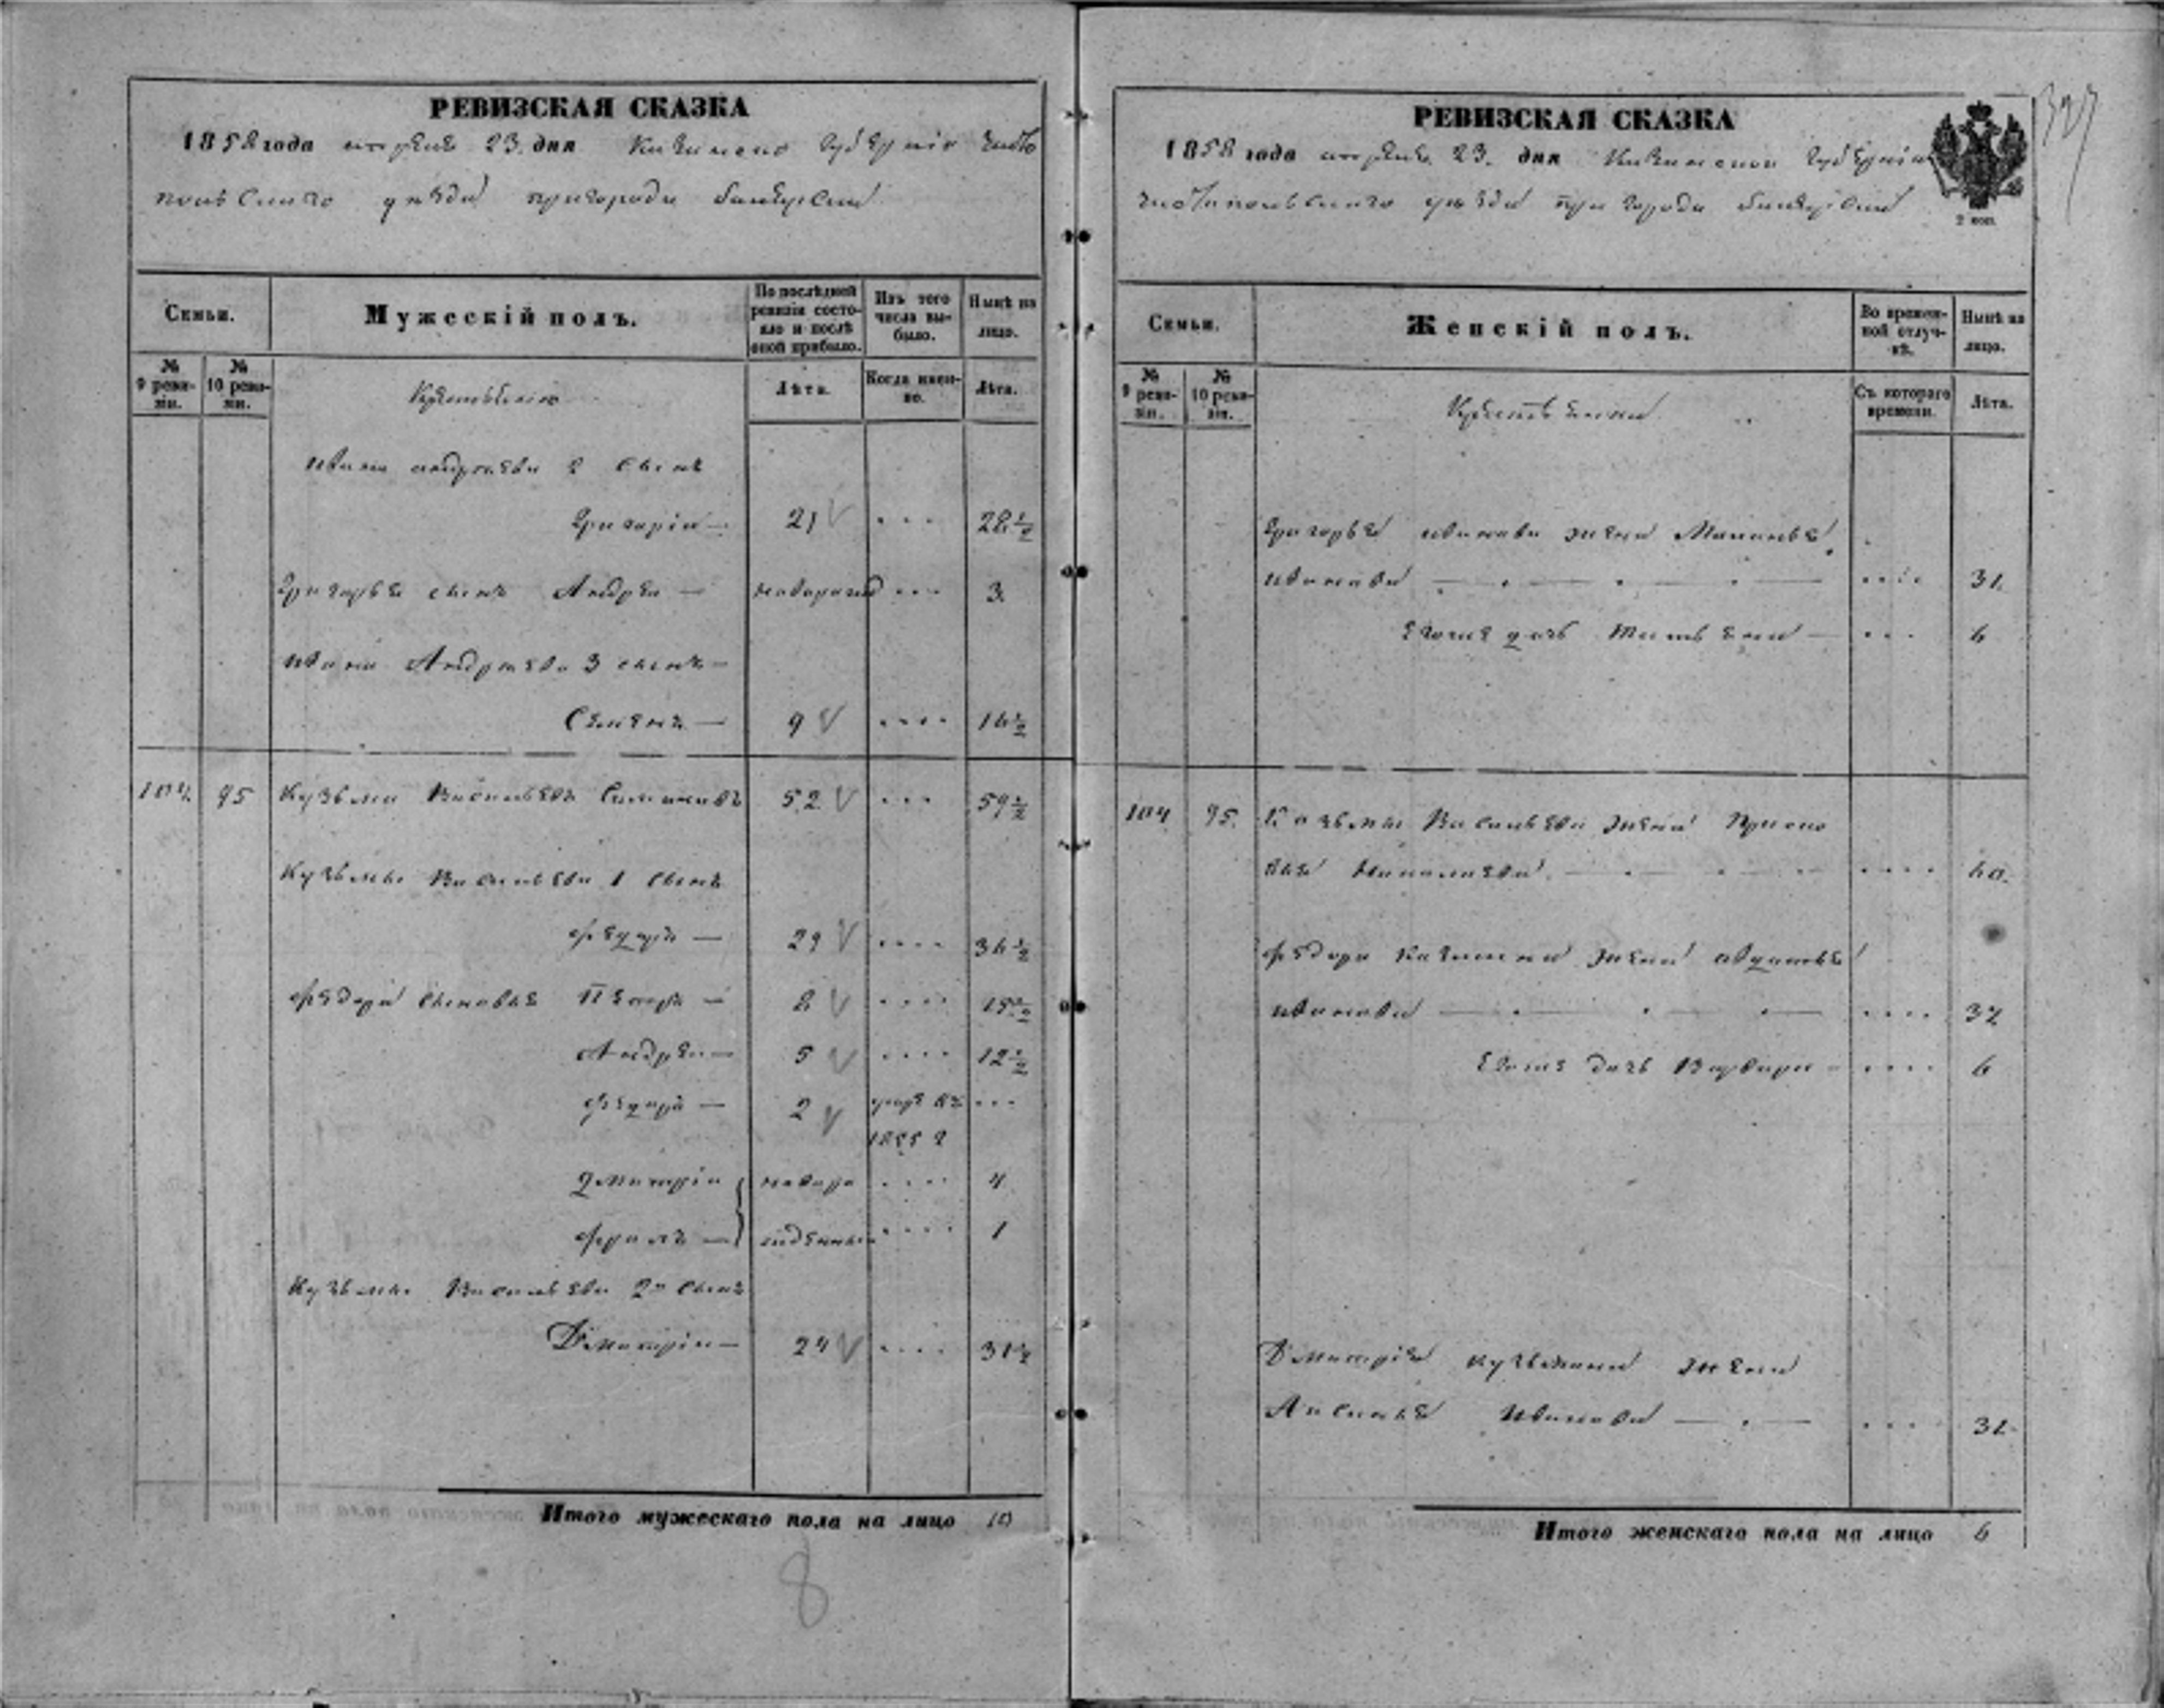 РЕВИЗСКАЯ СКАЗКА
1858 года апреля 23 дня Казанской губернии Чисто
польскаго уезда пригорода Билярска
Семьи.
Мужескій полъ.
По послѣдней ревизіи состояло и послѣ оной прибыло.
Изъ того числа выбыло.
Нынѣ на лицо.
№ 9 ревизіи.
№ 10 ревизіи.
Лѣта.
Когда именно.
Лѣта.
Ивана Андреева 2 сынъ
Григорій — 21 28 1/2
Григорья сынъ Андрей — новорожд 3
Ивана Андреева 3 сынъ —
Семенъ — 9 16 1/2
104 95 Кузьма Васильевъ 52 59 1/2
Кузьмы Васильева 1 сынъ
Федоръ — 29 36 1/2
Федора сыновья Петръ — 8 15 1/2
Андрей — 5 12 1/2
Федоръ — 2 умре въ
1855 г
Дмитрій новоро 4
Фролъ — жденные 1
Кузьмы Васильева 2й сынъ
Дмитрій — 24 31 1/2
Итого мужескаго пола на лицо 10
8
327
РЕВИЗСКАЯ СКАЗКА
1858 года апреля 23 дня Казанской губерніи
Чистопольскаго уезда пригорода Билярска
2 коп.
Семьи.
Женскій полъ.
Во временной отлучкѣ.
Нынѣ на лицо.
№ 9 ревизіи.
№ 10 ревизіи.
Съ котораго времени.
Лѣта.
Григорья Иванова жена Маланья
Иванова — 31
Евоная дочь — 6
104 95 Козьмы Васильева жена Праско
вья 60
Федора Казмина жена Авдотья
Иванова — 37
Евоная дочь Варвара 6
Дмитрія Кузьмина жена
Аксинья Иванова — 31
Итого женскаго пола на лицо 6